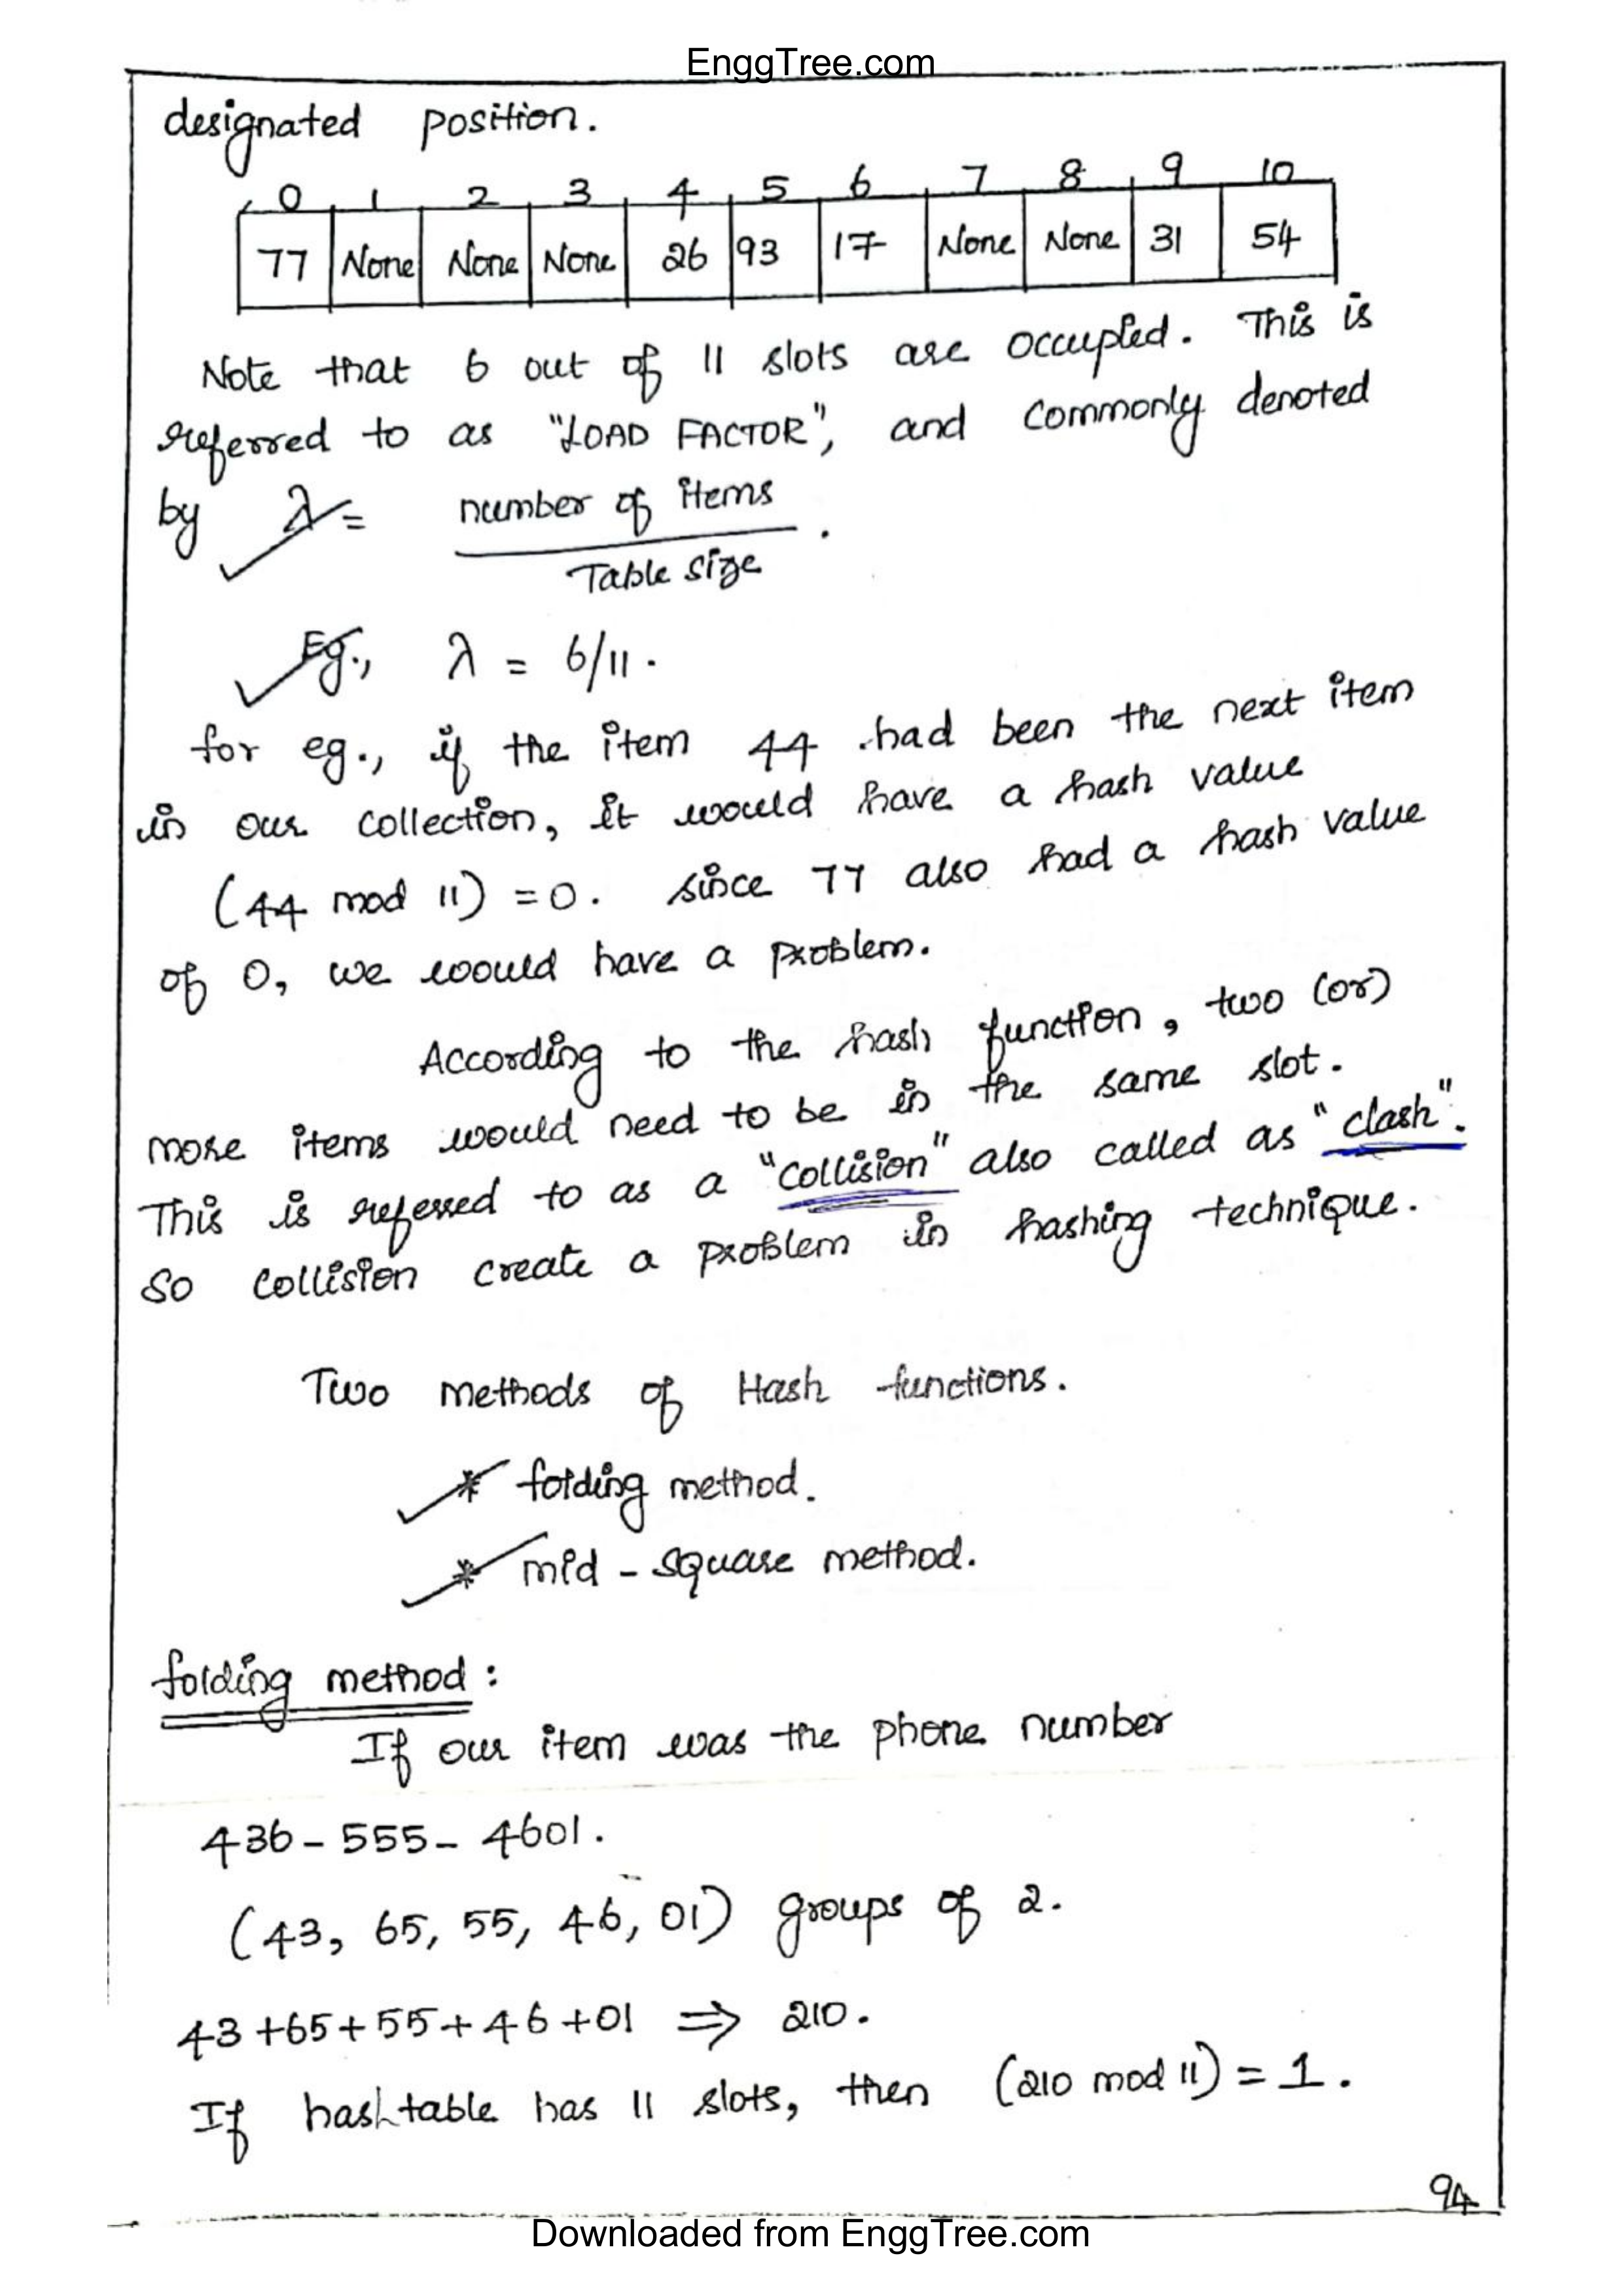 EnggTree.com
designated position.
0 1 2 3 4 5 6 7 8 9 10
77 None None None 26 93 17 None None 31 54
Note that 6 out of 11 slots are occupied. This is
referred to as "LOAD FACTOR", and commonly denoted
by λ = number of items
Table size .
Eg., λ = 6/11.
for eg., if the item 44 had been the next item
in our collection, it would have a hash value
(44 mod 11) = 0. since 77 also had a hash value
of 0, we would have a problem.
According to the hash function, two (or)
more items would need to be in the same slot.
This is refered to as a "collision" also called as "clash".
So collision create a problem in hashing technique.
Two methods of Hash functions.
* folding method.
* mid - square method.
folding method :
If our item was the phone number
436 - 555 - 4601.
(43, 65, 55, 46, 01) groups of 2.
43 + 65 + 55 + 46 + 01 ⇒ 210.
If hashtable has 11 slots, then (210 mod 11) = 1.
94
Downloaded from EnggTree.com